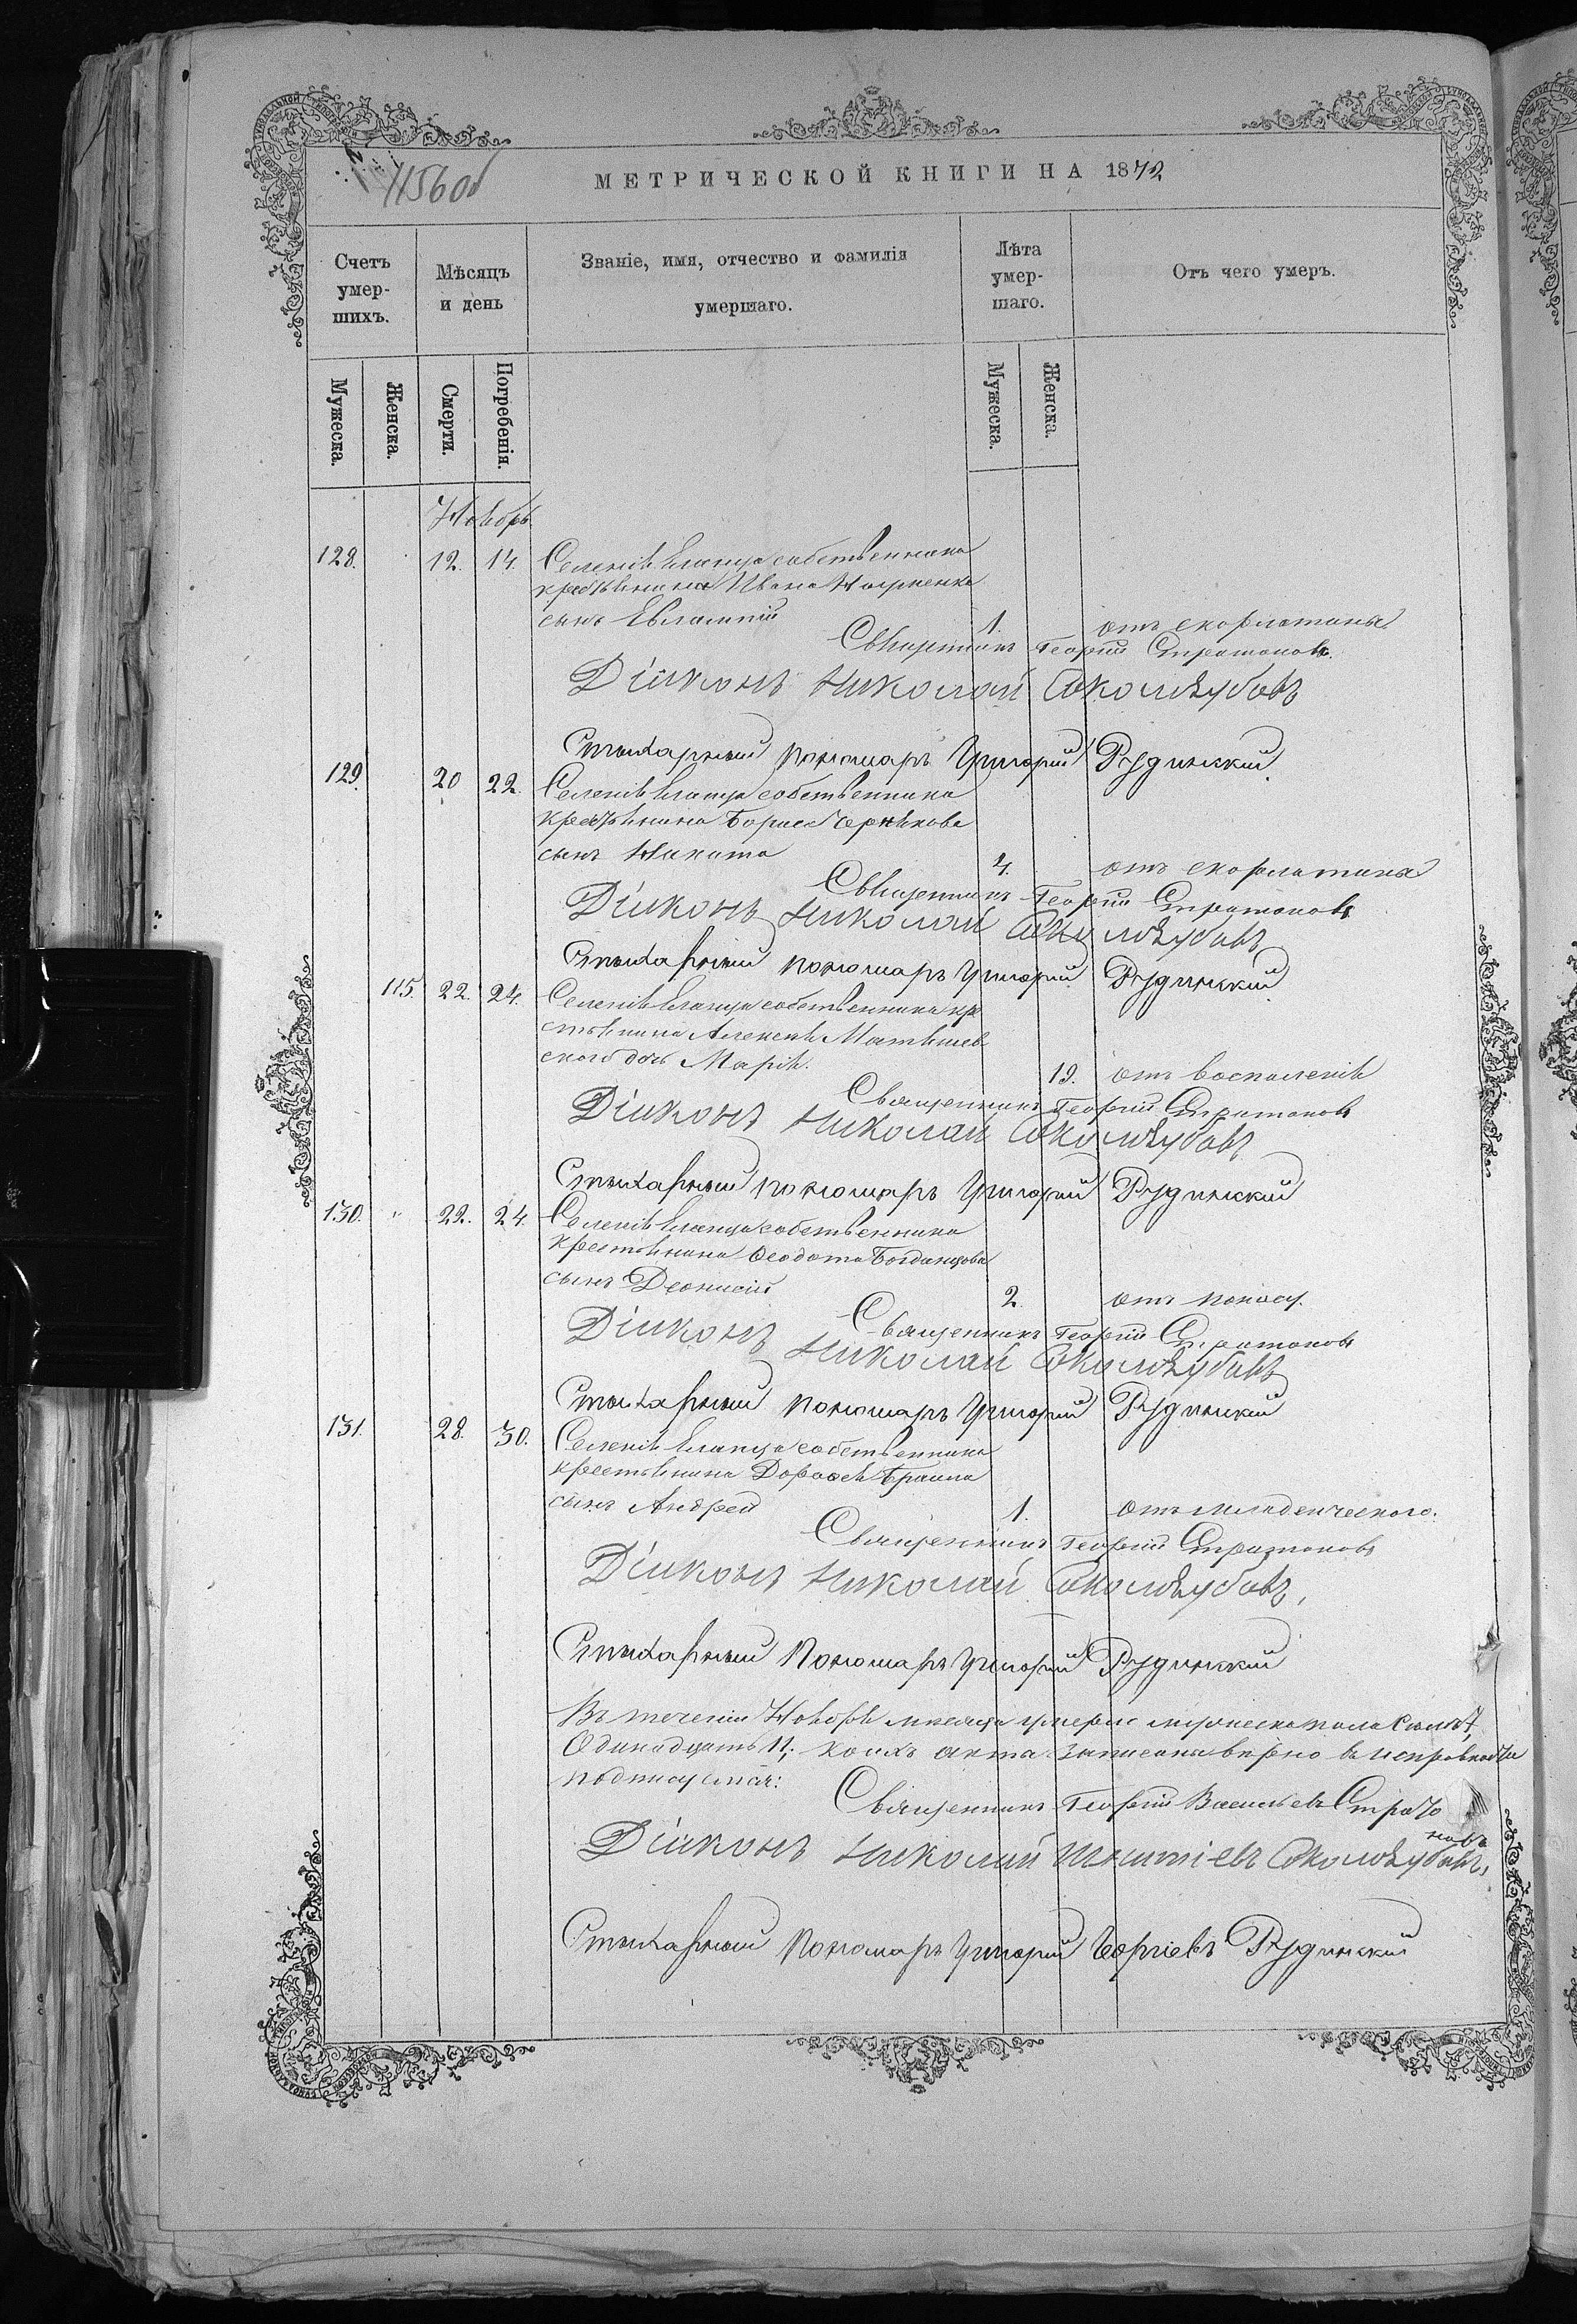 1156 об
МЕТРИЧЕСКОЙ КНИГИ НА 1872
Счетъ умершихъ.
Мѣсяцъ и день
Званіе, имя, отчество и фамилія умершаго.
Лѣта умершаго.
Отъ чего умеръ.
Мужеска.
Женска.
Смерти.
Погребенія.
Мужеска.
Женска.
Ноябрь
128. 12. 14. Селенія Еланца собственника
крестьянина Ивана
сынъ Евлампій 1. отъ скорлатины
Священникъ Георгій Стратоновъ
Діаконъ Николай
Стихарный пономарь Григорій Рудинскій
129. 20 22. Селенія Еланца собственника
крестьянина Бориса Чернякова
сынъ Никита 4. отъ скорлатины
Священникъ Георгій Стратоновъ
Діаконъ Николай
Стихарный пономарь Григорій Рудинскій
115. 22. 24. Селенія Еланца собственника кре
стьянина Алексея Матвиев
ского дочь Марія. 19. отъ воспаленія
Священникъ Георгій Стратоновъ
Діаконъ Николай
Стихарный пономарь Григорій Рудинскій
130. " 22. 24. Селенія Еланца собственника
крестьянина Ѳеодота Богданцова
сынъ Деонисій 2 отъ поносу.
Священникъ Георгій Стратоновъ
Діаконъ Николай
Стихарный пономарь Григорій Рудинскій
131. 28. 30. Селенія Еланца собственника
крестьянина Дороѳея
сынъ Андрей 1. отъ младенческого.
Священникъ Георгій Стратоновъ
Діаконъ Николай
Стихарный Пономарь Григорій Рудинскій
Въ теченіи Ноября месяца умерло мужеска пола
Одинадцать 11, коихъ акта записаны верно в исправности
подписуемся:
Священникъ Георгій Васильевъ Страто
новъ
Діаконъ Николай
Стихарный Пономарь Григорій Рудинскій